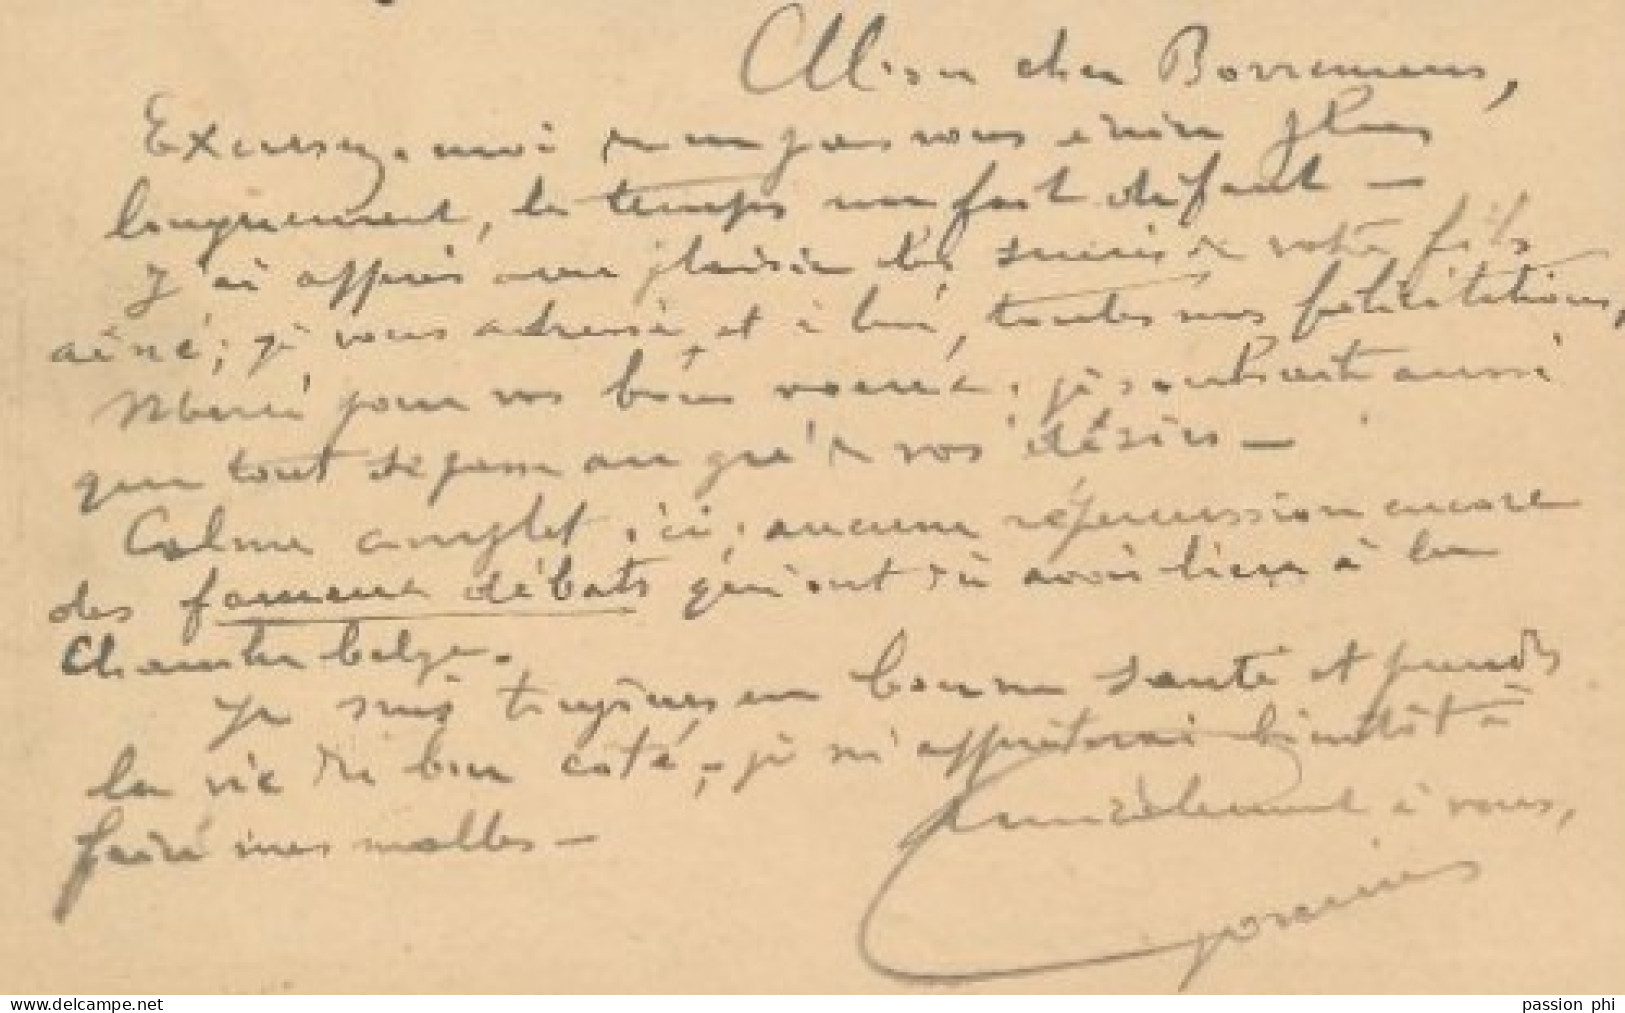 Mon cher Borremans,
Excusez-moi de ne pas vous écrire plus
longuement, le temps me fait défaut —
J'ai appris avec plaisir les succès de votre fils
aîné; je vous adresse, et à lui, toutes mes félicitations,
Merci pour vos bons voeux; je souhaite aussi
que tout se passe au gré de vos désirs —
Calme complet ici; aucune répercussion encore
des fameux débats qui ont dû avoir lieu à la
Chambre belge.
Je suis toujours en bonne santé et prends
la vie du bon côté, — je m'apprêterai bientôt à
faire mes malles —
à vous,
www.delcampe.net
passion phi